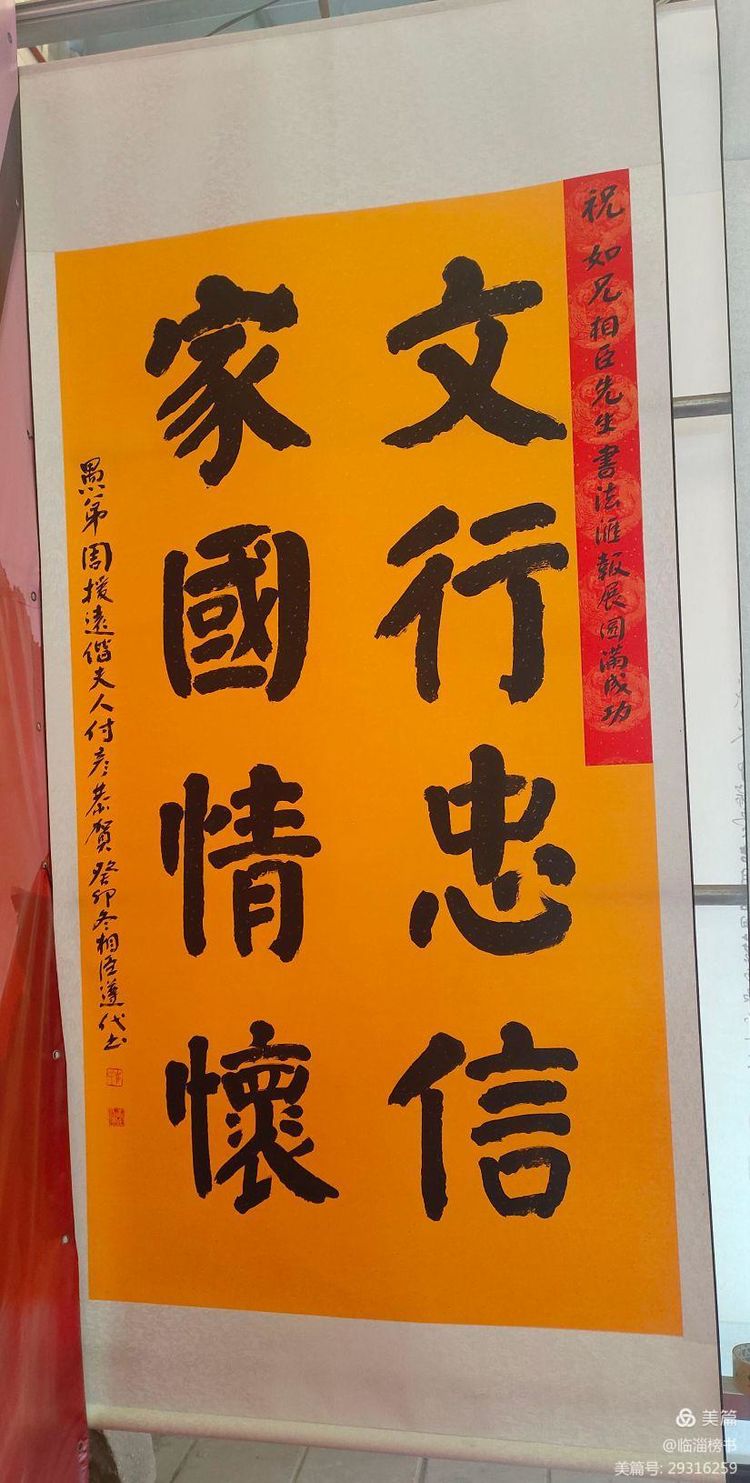 祝如兄相臣先生書法滙報展圆满成功
文行忠信
家國情懷
愚弟周援遠偕夫人付彦恭賀癸卯冬相臣遵代书
美篇
@临淄榜书
美篇号: 29316259